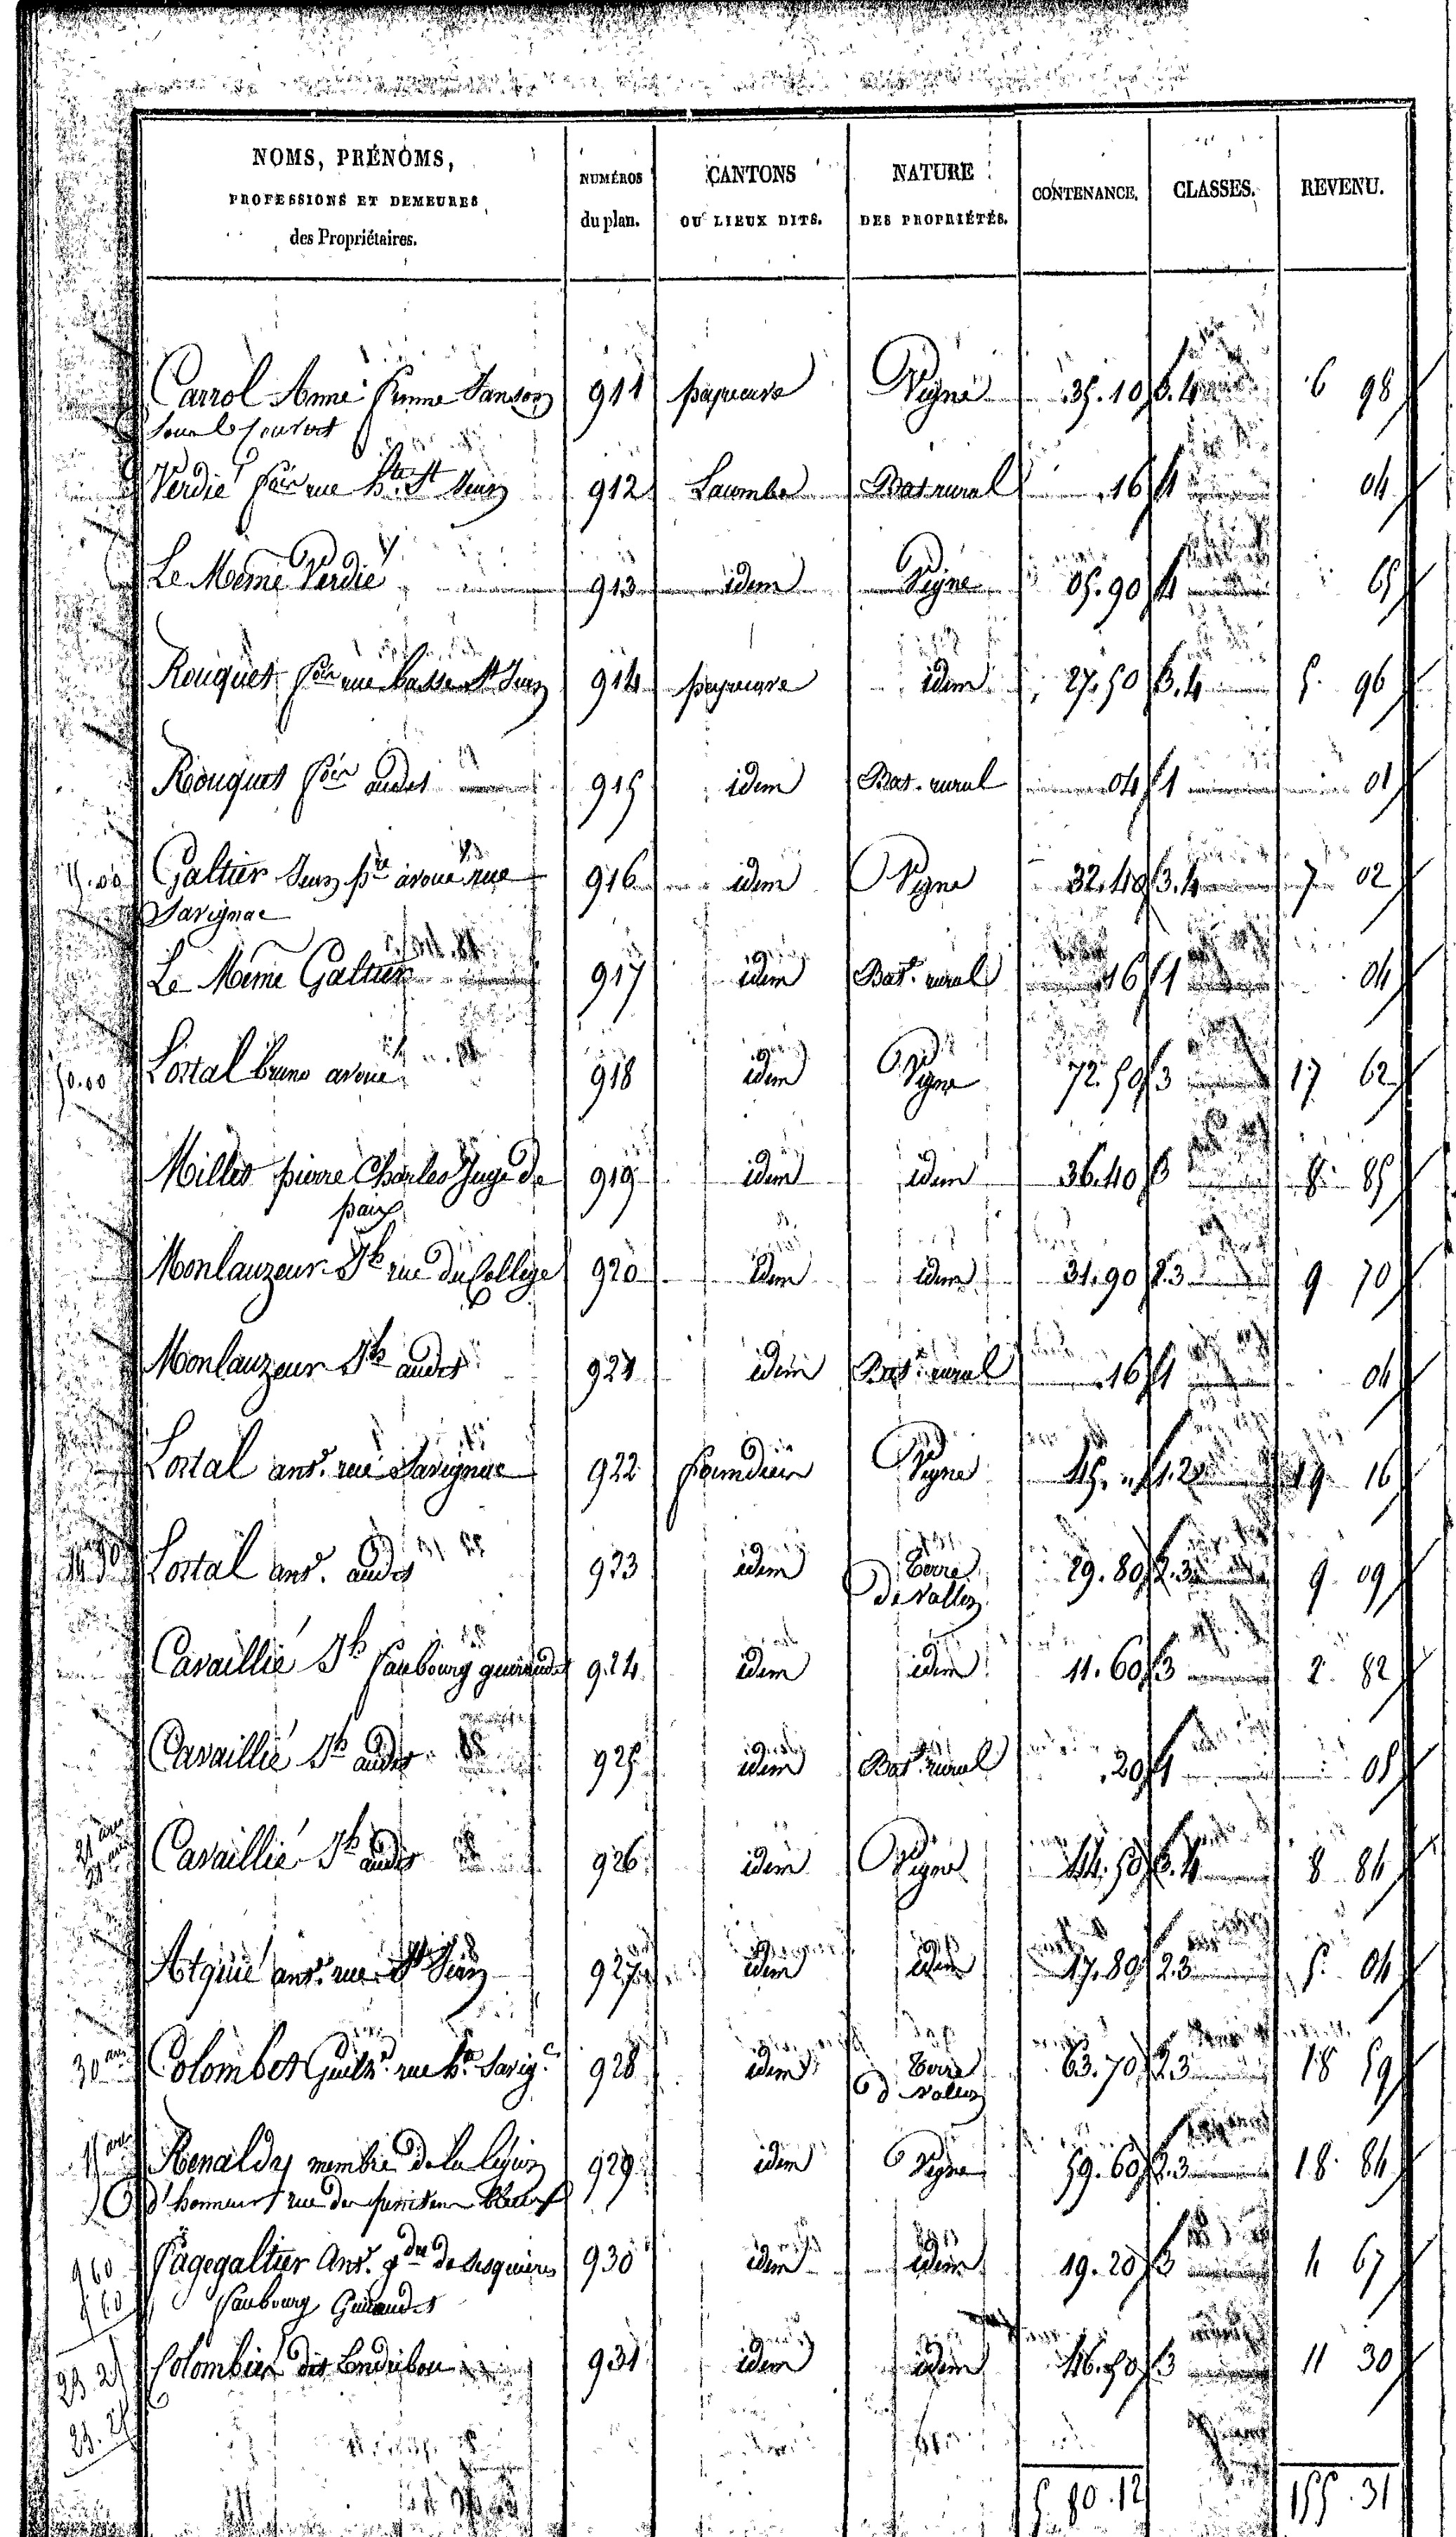 NOMS, PRÉNOMS,
PROFESSIONS ET DEMEURES
des Propriétaires.
NUMÉROS
du plan.
CANTONS
OU LIEUX DITS.
NATURE
DES PROPRIÉTÉS.
CONTENANCE.
CLASSES.
REVENU.
Carrol Anne femme 911 Vigne 35.10 3.4 6 98
Verdié rue hte St Jean 912 Laumbe Bat rural 16 1 04
Le Meme Verdié 913 idem Vigne 05.90 4 65
Rouquet rue basse St Jean 914 idem 27.50 3.4 5. 96
Rouquet audet 915 idem Bat. rural 04 1 01
15.00 Galtier avoué rue 916 idem Vigne 32.40 3.4 7 02
Savignac
Le Meme Galtier 917 idem Bat. rural 16 1 04
50.00 Lortal bruno avoué 918 idem Vigne 72.50 3 17 62
Millet pierre Charles Juge de 919 idem idem 36.40 3 8. 85
paix
Monlauzeur Jh rue du College 920 idem idem 31.90 2.3 9 70
Monlauzeur Jh audet 921 idem Bat. rural 16 1 04
Lortal ant. rue Savignac 922 Vigne 45. " 1.2 19 16
Lortal ant. audet 923 idem Terre 29.80 2.3 9 09
de Vallon
Cavaillié Jh faubourg guiraudet 924 idem idem 11.60 3 2. 82
Cavaillié Jh audet 925 idem Bat. rural 20 1 05
21 ares Cavaillié Jh audet 926 idem Vigne 44.50 3.4 8 84
Alquié ant. rue St Jean 927 idem idem 17.80 2.3 5. 04
30 ares Colombet rue hte Savig. 928 idem Terre 63.70 2.3 18 59
d. Vallon
Renaldy membre de la legion 929 idem Vigne 59.60 2.3 18. 84
d'honneur rue du
9 60 Pagegaltier Ant. gdre de Lesquieres 930 idem idem 19.20 3 4 67
faubourg Guiraudet
23 25 Colombier dit 931 idem idem 46.50 3 11 30
23.25
5 80.12 155.31